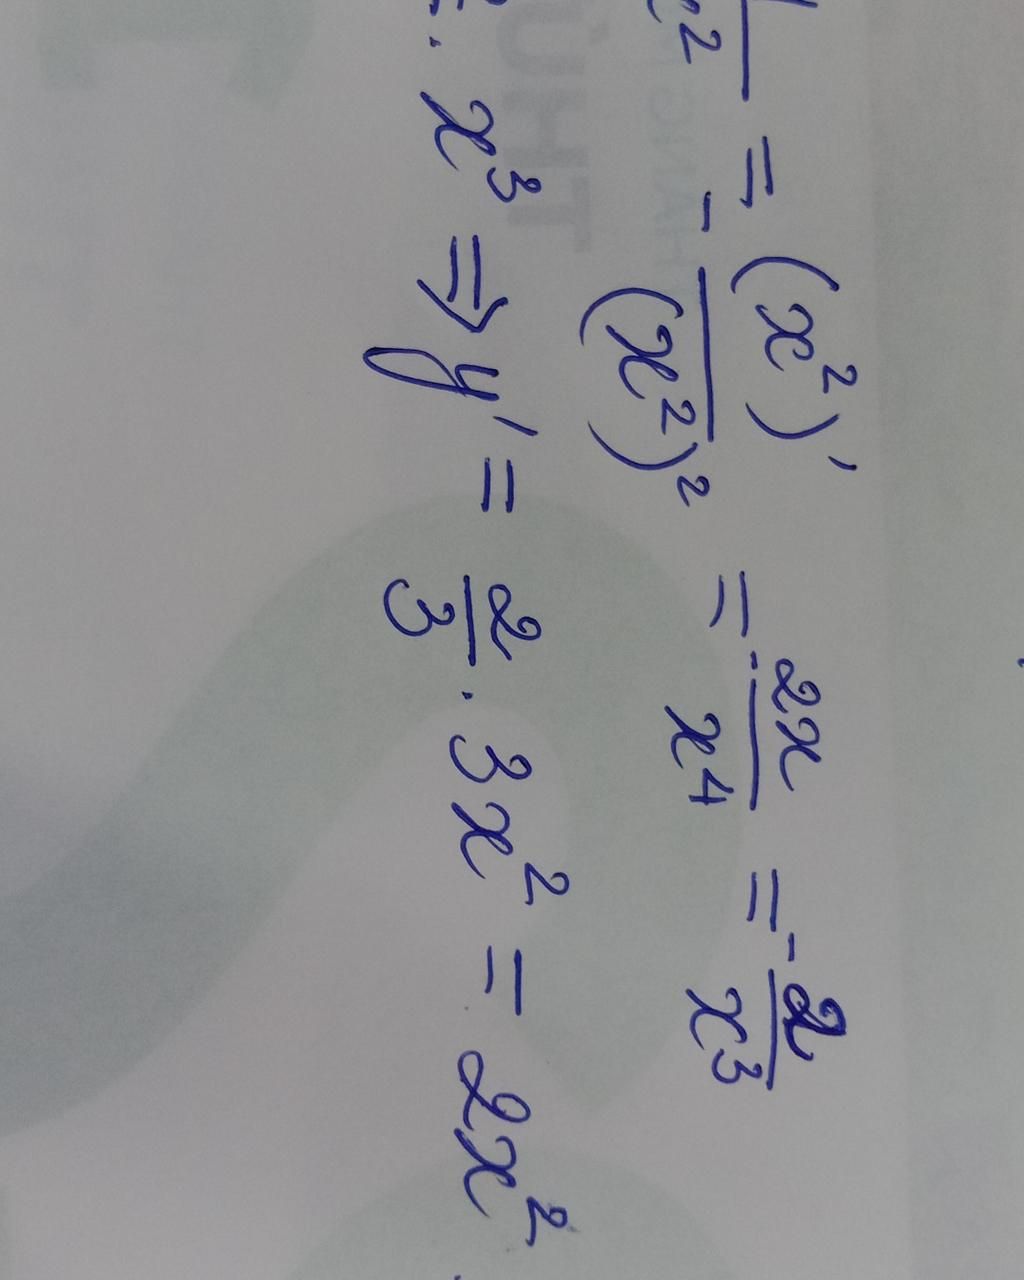 x² = - (x²)' / (x²)² = - 2x / x⁴ = - 2 / x³
. x³ ⇒ y' = 2/3 . 3x² = 2x².